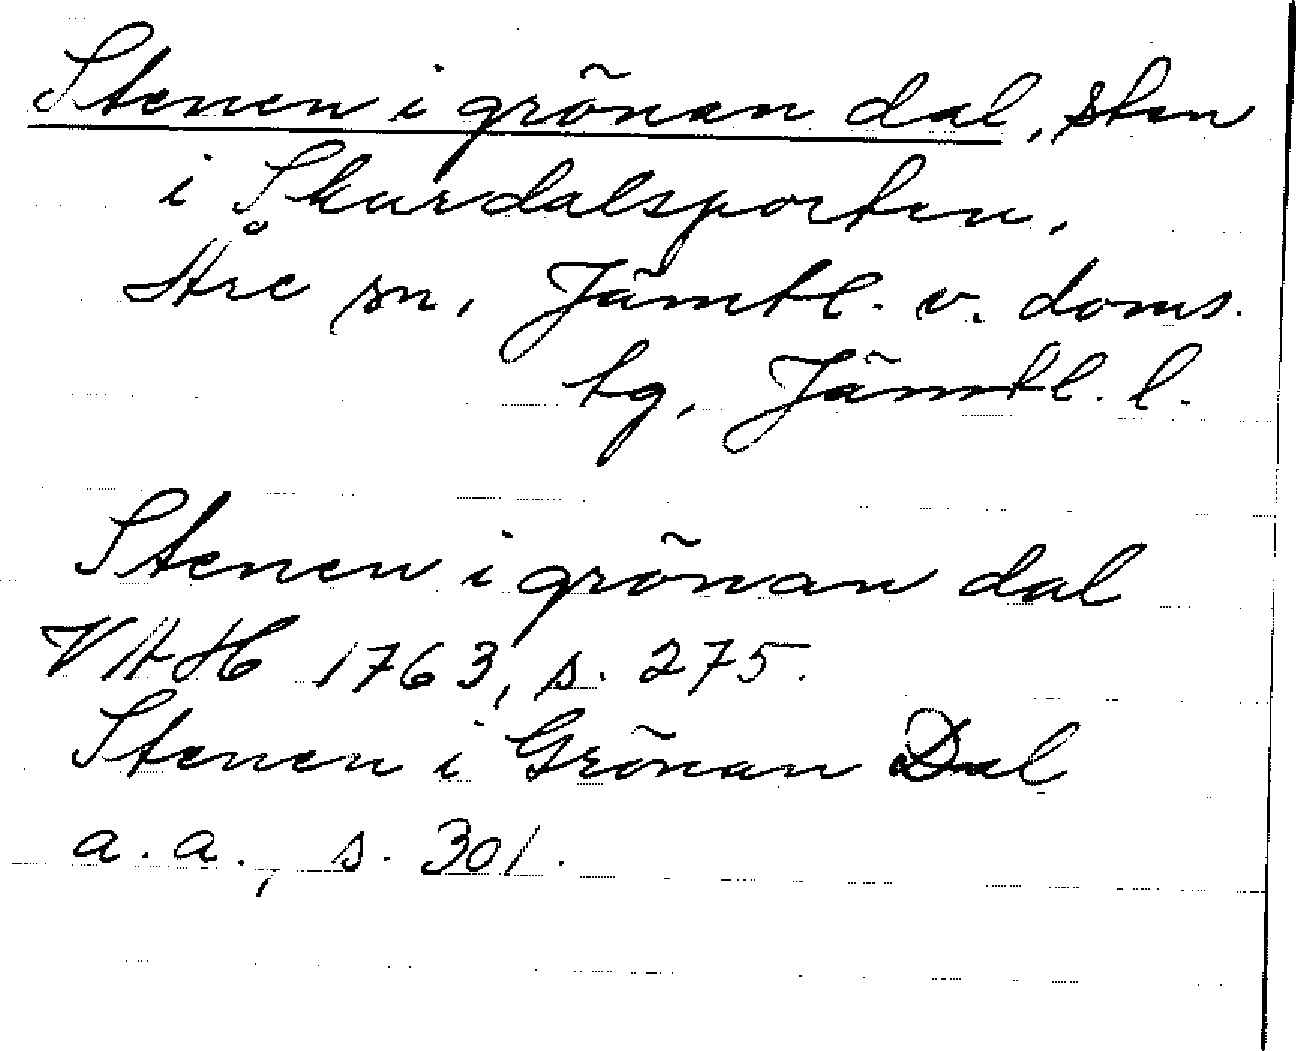 Stenen i grönan dal, sten
i Skurdalsporten.
Åre sn, Jämtl. v. doms.
tg, Jämtl. l.
Stenen i grönan dal
VAH 1763, s. 275.
Stenen i Grönan Dal
a. a., s. 301.